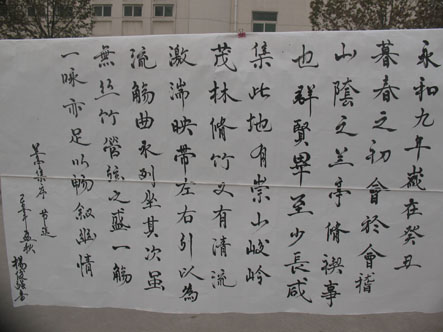 永和九年歲在癸丑
暮春之初會於會稽
山陰之兰亭脩禊事
也群賢畢至少長咸
集此地有崇山峻岭
茂林脩竹又有清流
激湍映帶左右引以為
流觴曲水列坐其次虽
無丝竹管弦之盛一觴
一咏亦足以暢敘幽情
兰亭集序 节选